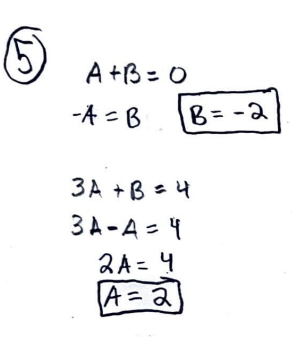 5
A + B = 0
-A = B B = -2
3A + B = 4
3A - A = 4
2A = 4
A = 2